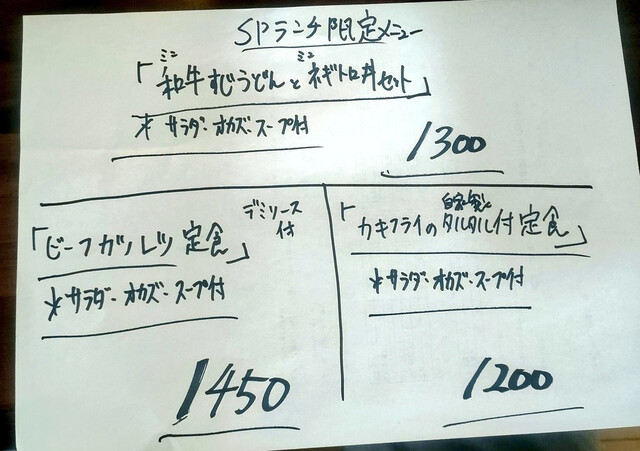 SPランチ限定メニュー
「ミニ和牛すじうどんとミニネギトロ丼セット」
* サラダ・オカズ・スープ付
1300
「ビーフカツレツ定食」デミソース付
* サラダ・オカズ・スープ付
1450
「カキフライの自家製タルタル付定食」
* サラダ・オカズ・スープ付
1200